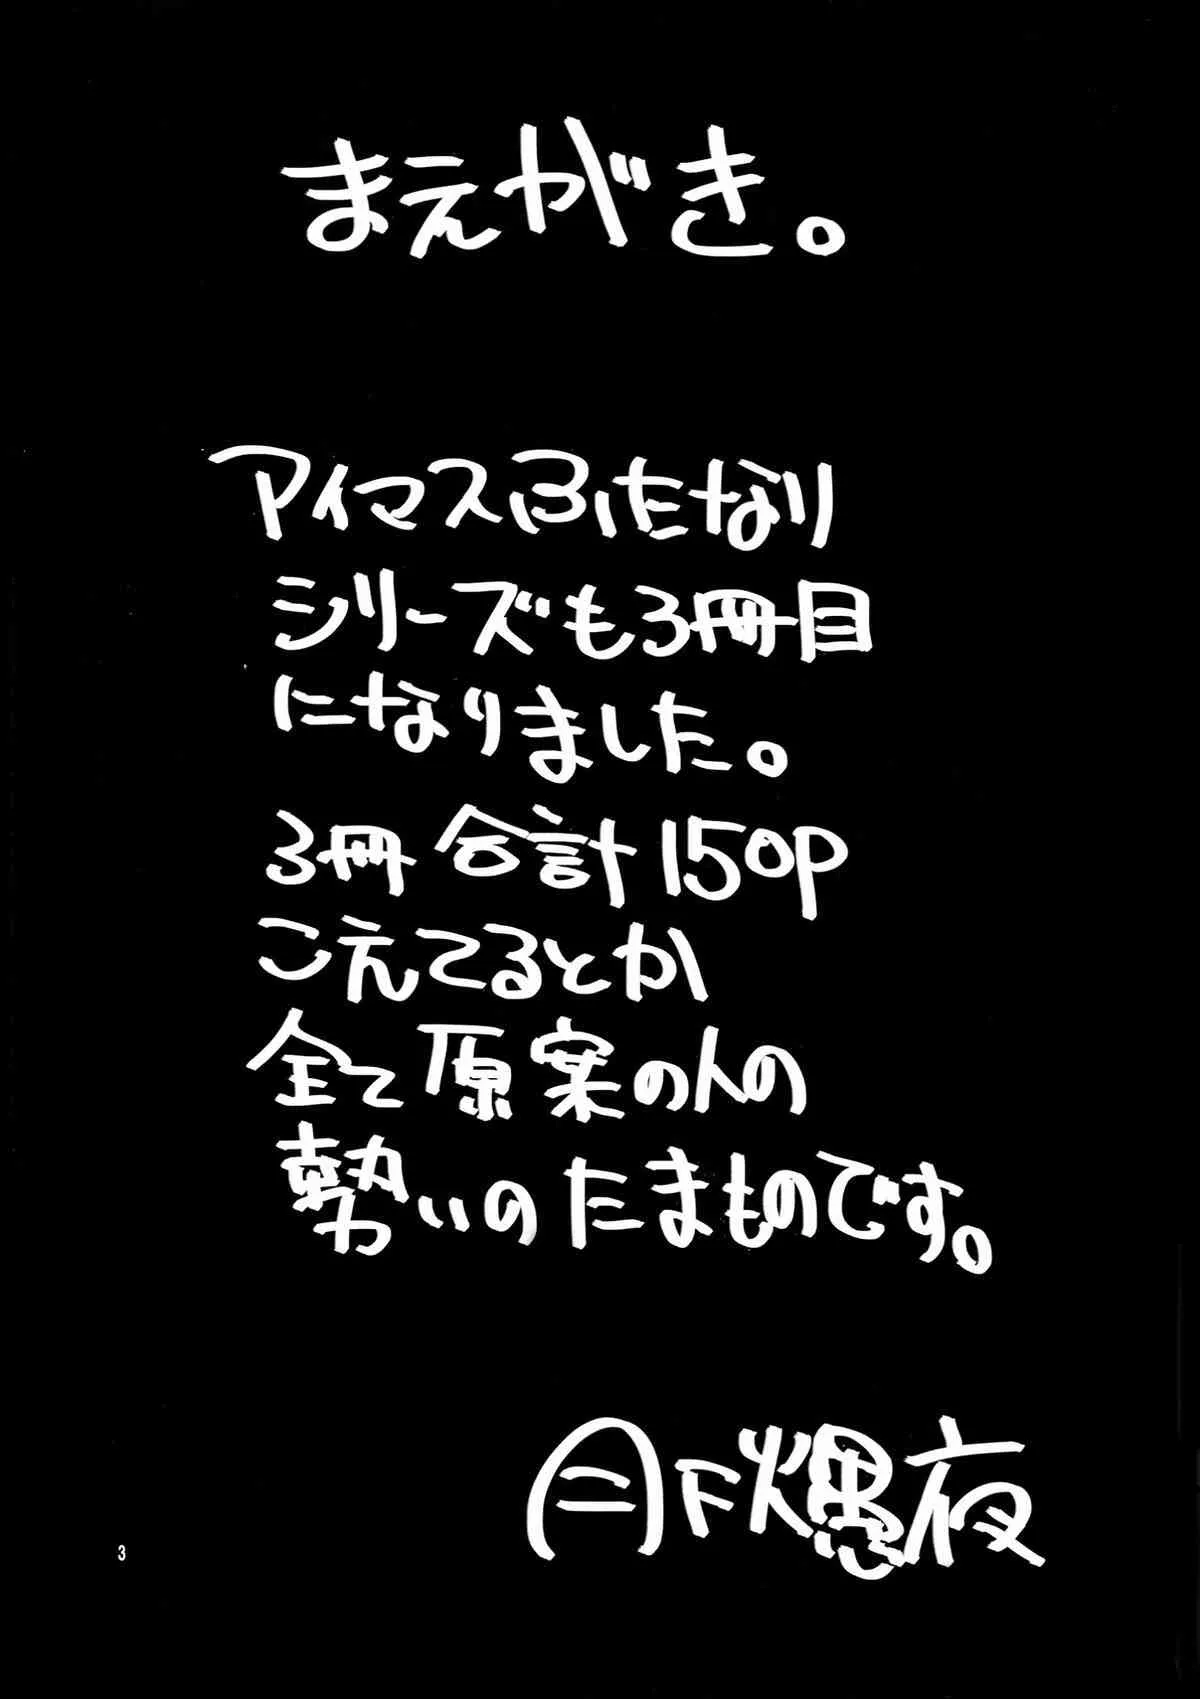 まえがき。
アイマスふたなり
シリーズも3冊目
になりました。
3冊 合計150P
こえてるとか
全て原案の人の
勢いのたまものです。
月下夜
3